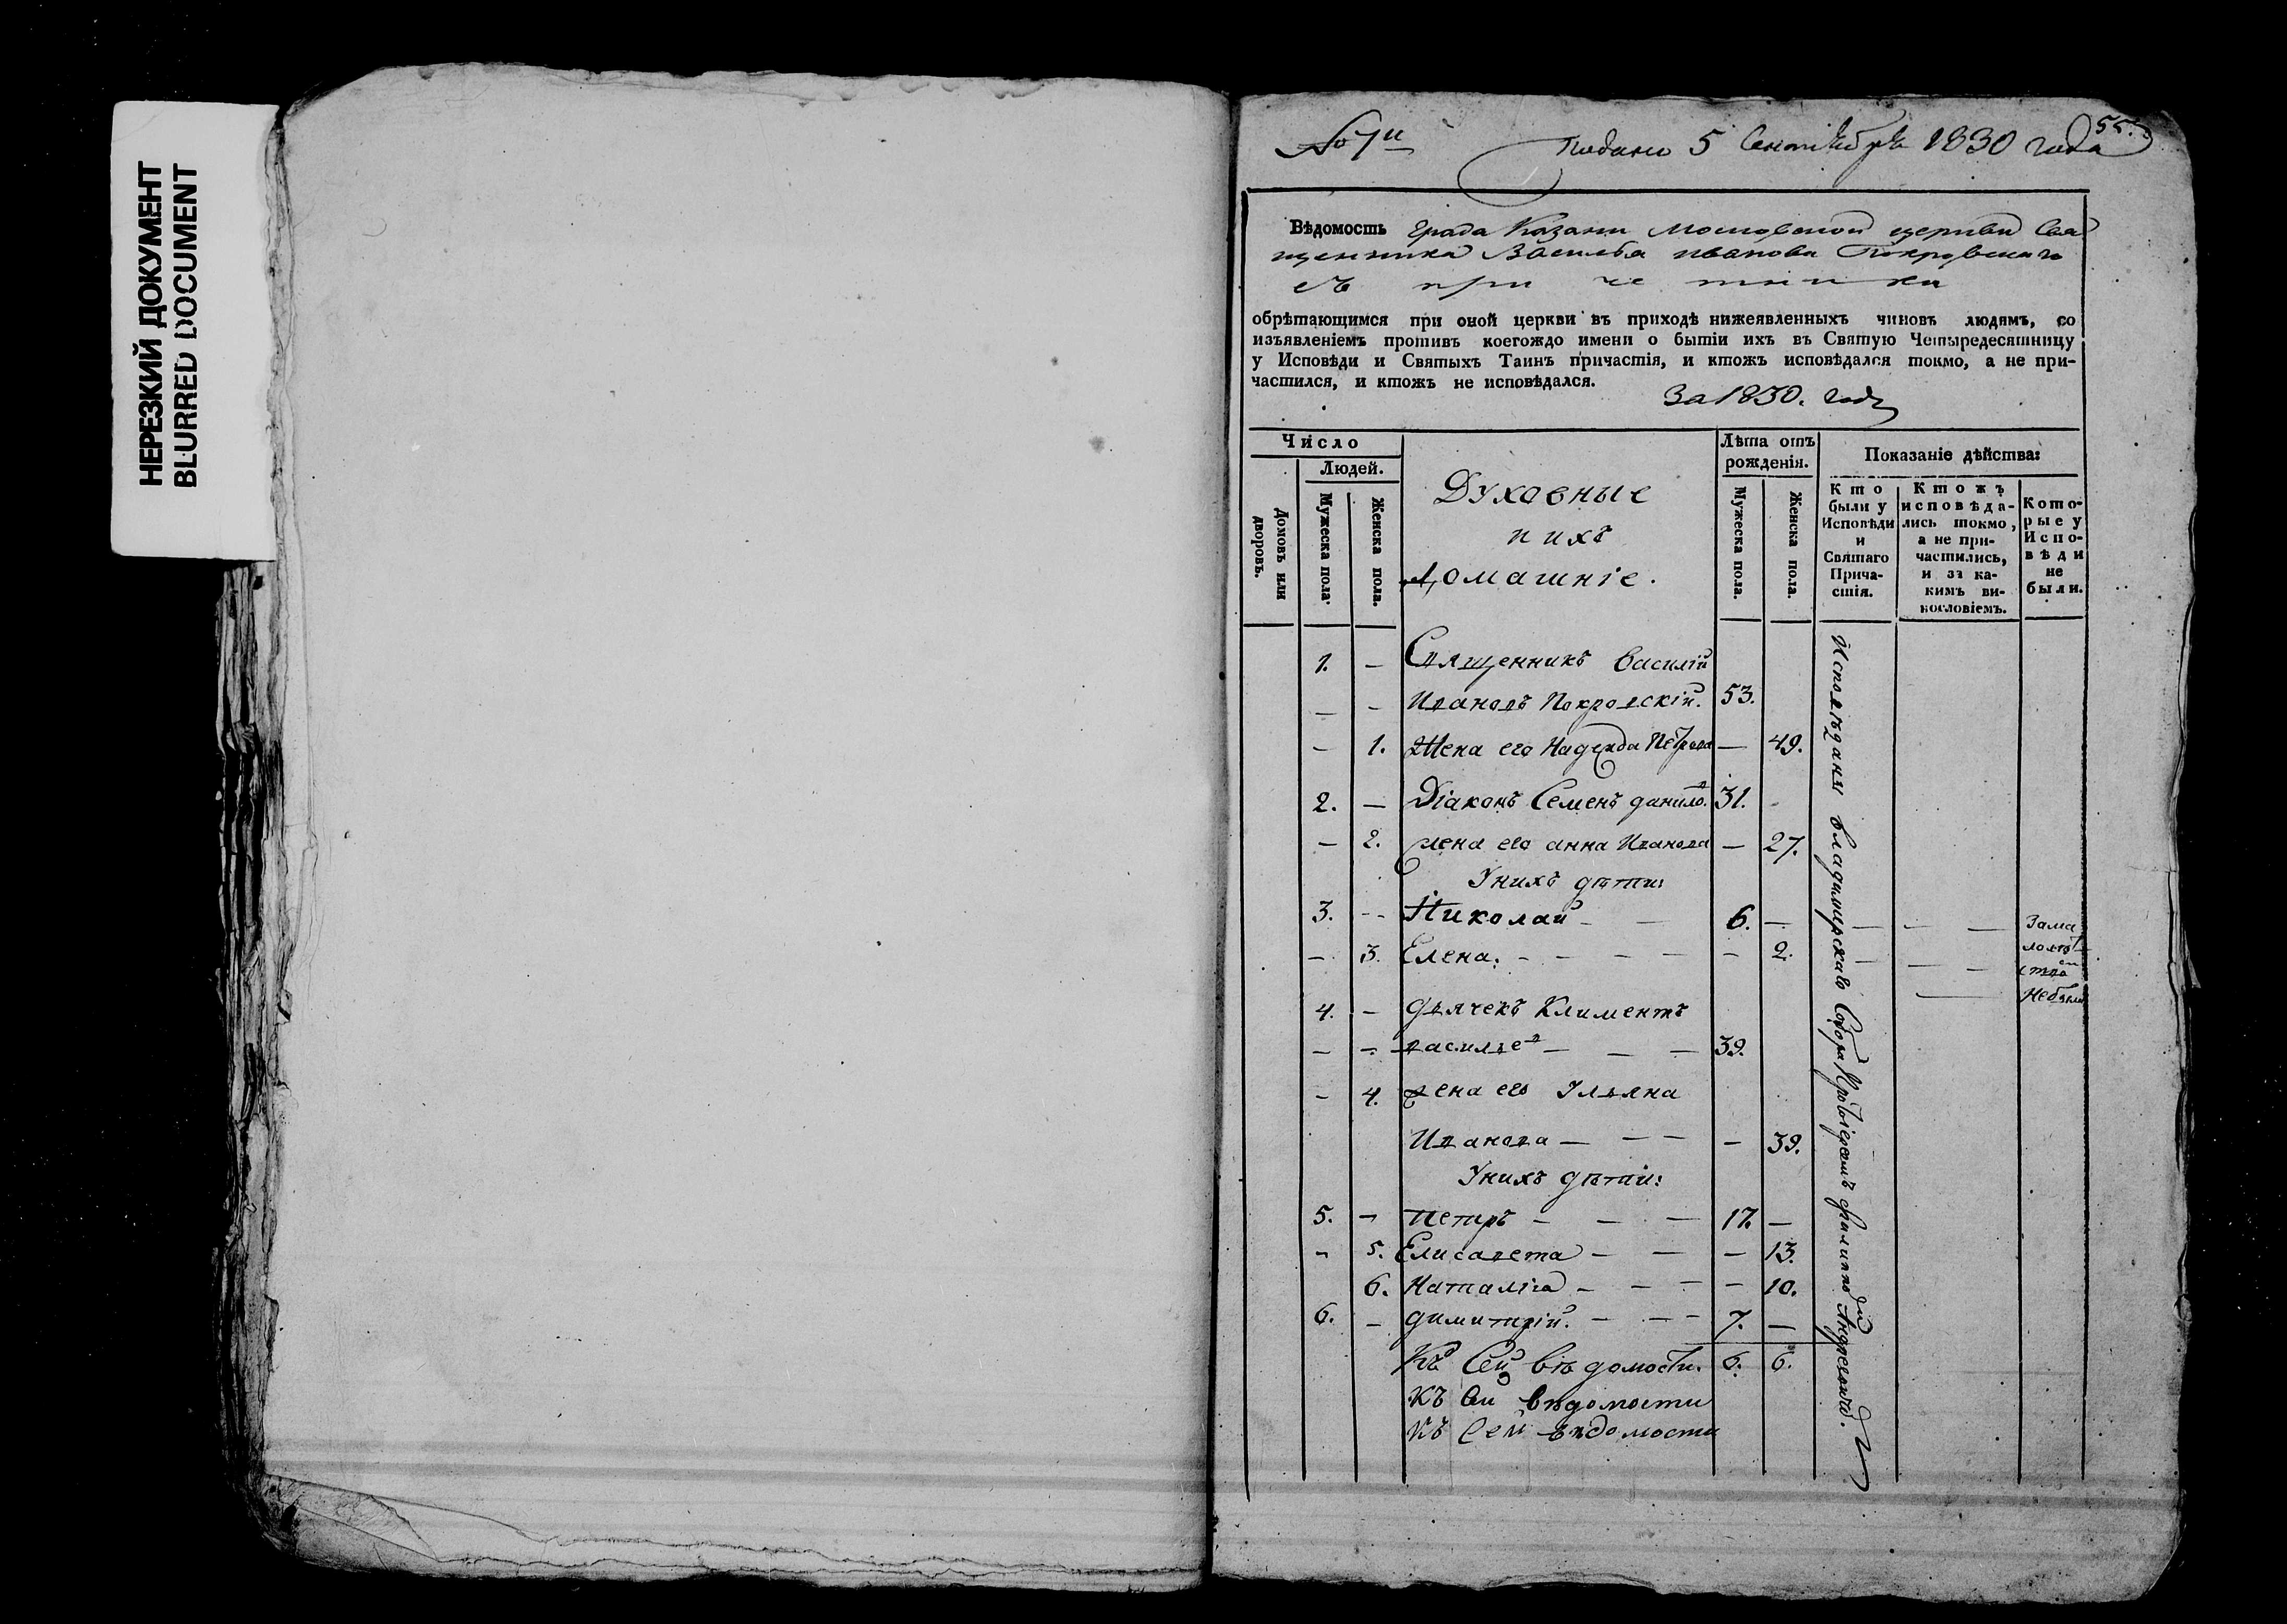 НЕРЕЗКИЙ ДОКУМЕНТ
BLURRED DOCUMENT
55.
№ 7й Подано 5 Сентября 1830 года
Вѣдомость града Казани Московской церкви Свя
щенника Василья иванова Покровскаго
съ причетники
обрѣтающимся при оной церкви въ приходѣ нижеявленныхъ чиновъ людямъ, со
изъявленіемъ противъ коегождо имени о бытіи ихъ въ Святую Четыредесятницу
у Исповѣди и Святыхъ Таинъ причастія, и ктожъ исповѣдался токмо, а не при-
частился, и ктожъ не исповѣдался.
За 1830. годъ
Число
Людей.
Домовъ или дворовъ.
Мужеска пола.
Женска пола.
Духовные
ихъ
Домашніе.
Лѣта отъ
рожденія.
Мужеска пола.
Женска пола.
Показаніе дѣйства:
Кто
были у
Исповѣди
и
Святаго
Прича-
стія.
Ктожъ
исповѣда-
лись токмо,
а не при-
частились,
и за ка-
кимъ ви-
нословіемъ.
Кото-
рые у
Испо-
вѣди
не
были.
1. — Священникъ Василій
— — Ивановъ Покровскій. 53.
— 1. Жена его Надежда Петрова — 49.
2. — Діаконъ Семенъ данилов. 31.
— 2. жена его анна Иванова — 27.
Унихъ дѣти:
3. — Николай — — 6. — — — —
— 3. Елена. — — — — — 2. — — —
За ма
лолѣт
ством
Небыли
4. — дьячекъ Климентъ
— — васильев — — — 39.
— 4. жена его Ульяна
Иванова — — — — 39.
Унихъ дѣти:
5. — петръ — — — 17. —
— 5. Елисавета — — — 13.
6. Наталіа — — — — 10.
6. — димитрій. — — — 7. —
Къ Сей вѣдомости. 6. 6.
Къ Сей вѣдомости
Къ Сей вѣдомости
Исповѣданы владимирскаго Собора Протіереемъ филиппо Андреевичемъ.